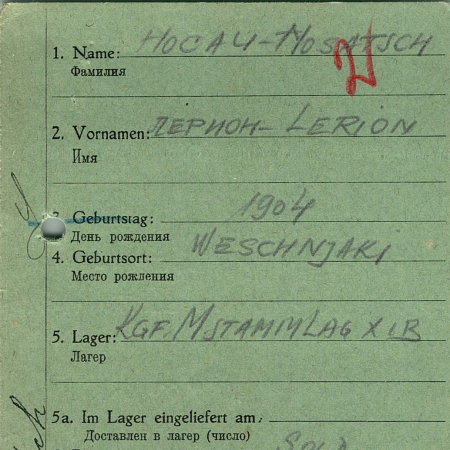 1. Name: НОСАЧ-NOSATSCH
Фамилия
2. Vornamen: ЛЕРИОН- LERION
Имя
3. Geburtstag: 1904
День рождения
4. Geburtsort: WESCHNJAKI
Место рождения
5. Lager: KGF. MSTAMMLAG X IB
Лагер
5a. Im Lager eingeliefert am:
Доставлен в лагер (число)